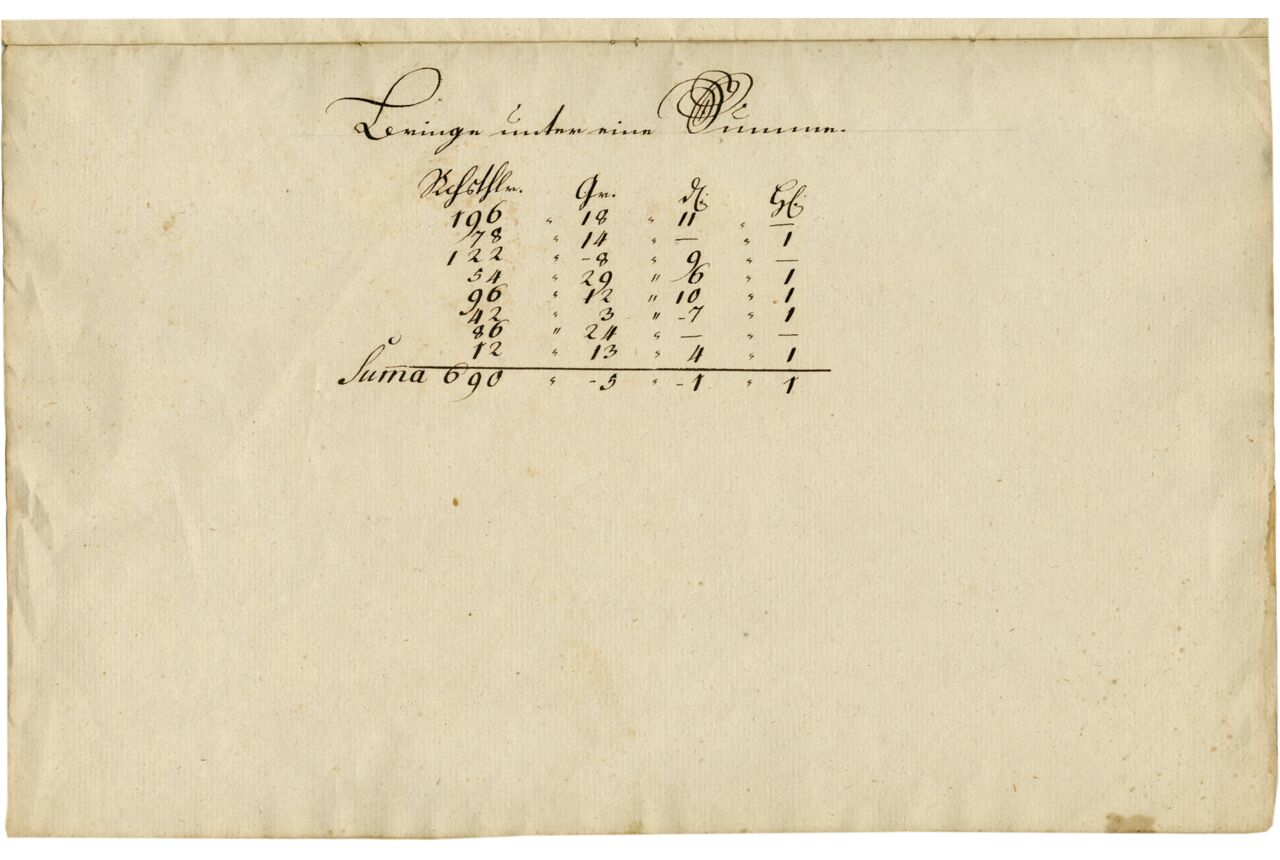 Bringe unter eine Summe.
Rchsthlr. Gr. ₰. Hl.
196 " 18 " 11 " —
78 " 14 " — " 1
122 " -8 " 9 " —
54 " 29 " 6 " 1
96 " 12 " 10 " 1
42 " 3 " -7 " 1
86 " 24 " — " —
12 " 13 " 4 " 1
Suma 690 " -5 " -1 " 1